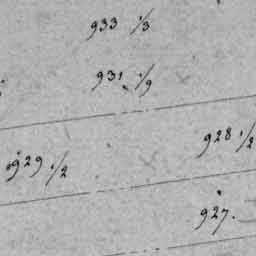 933 1/3
931 1/9
928 1/2
929 1/2
927.